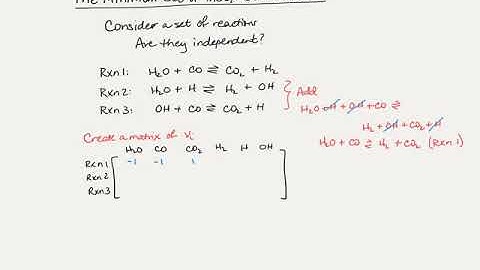 Consider a set of reactions
Are they independent?
Rxn 1: H₂O + CO ⇌ CO₂ + H₂
Rxn 2: H₂O + H ⇌ H₂ + OH
Rxn 3: OH + CO ⇌ CO₂ + H
Add
H₂O + H + OH + CO ⇌
H₂ + OH + CO₂ + H
H₂O + CO ⇌ H₂ + CO₂ (Rxn 1)
Create a matrix of νᵢ
H₂O CO CO₂ H₂ H OH
Rxn 1 -1 -1 1
Rxn 2
Rxn 3